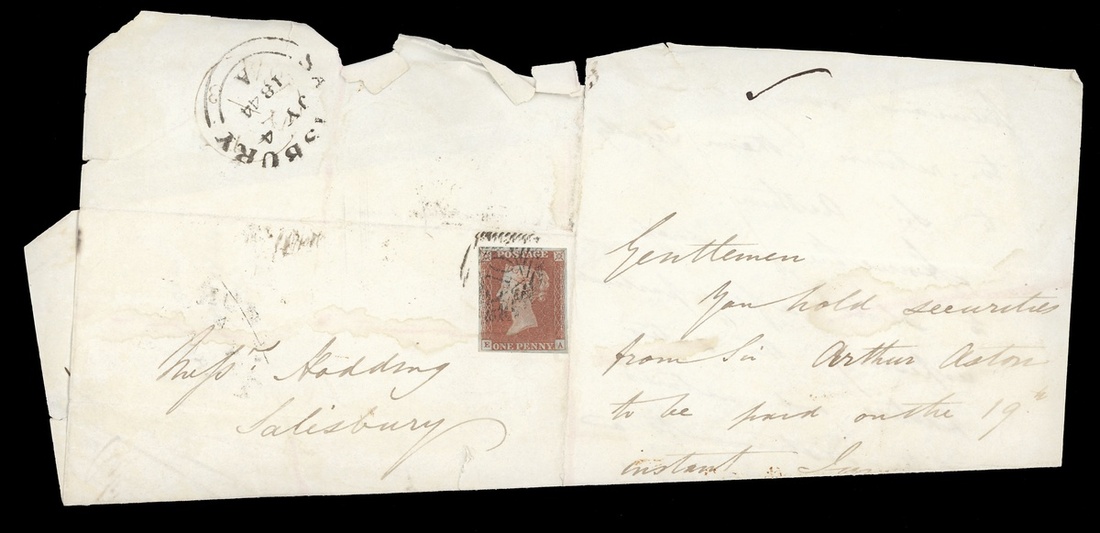 SALISBURY
JY 4
1844
A
POSTAGE
ONE PENNY
A
Messrs. Hodding
Salisbury
Gentlemen
You hold securities
from Sir Arthur Aston
to be paid on the 19th
instant